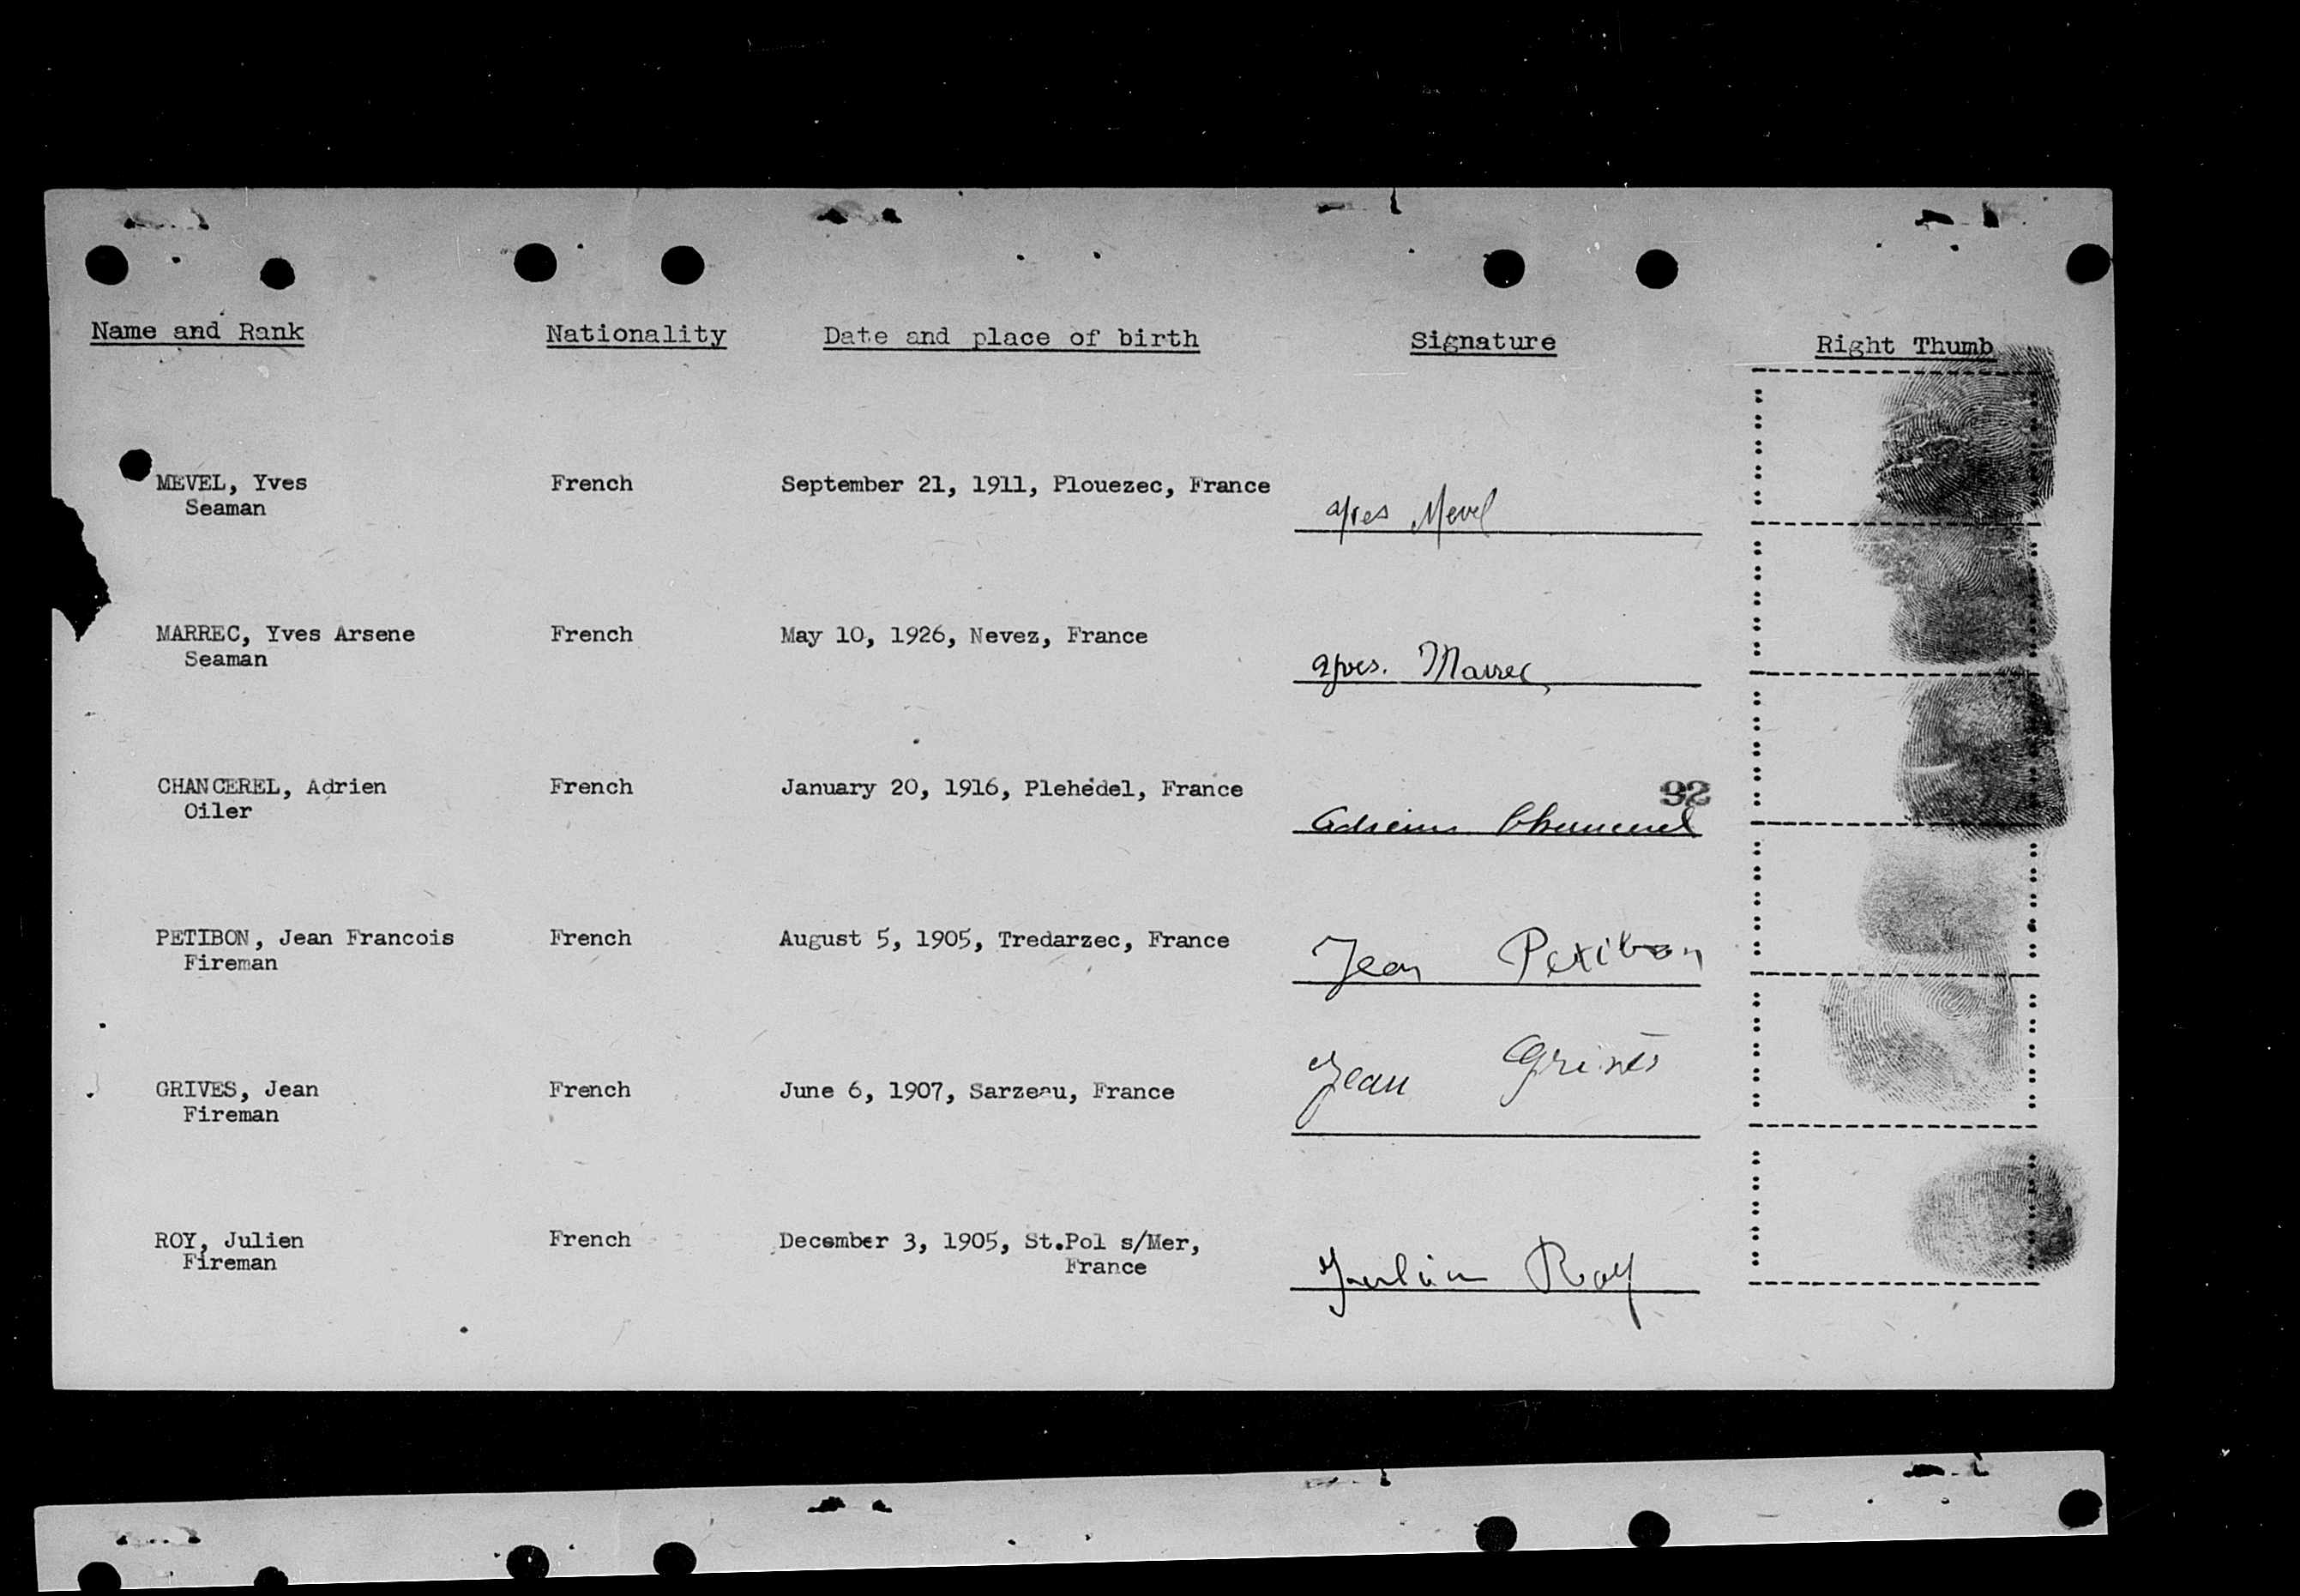 Name and Rank Nationality Date and place of birth Signature Right Thumb
MEVEL, Yves French September 21, 1911, Plouezec, France
Seaman
Yves Mevel
MARREC, Yves Arsene French May 10, 1926, Nevez, France
Seaman
Yves. Marrec
CHANCEREL, Adrien French January 20, 1916, Plehedel, France 92
Oiler
PETIBON, Jean Francois French August 5, 1905, Tredarzec, France
Fireman
Jean Petibon
GRIVES, Jean French June 6, 1907, Sarzeau, France
Fireman
Jean Grives
ROY, Julien French December 3, 1905, St.Pol s/Mer,
Fireman France
Roy